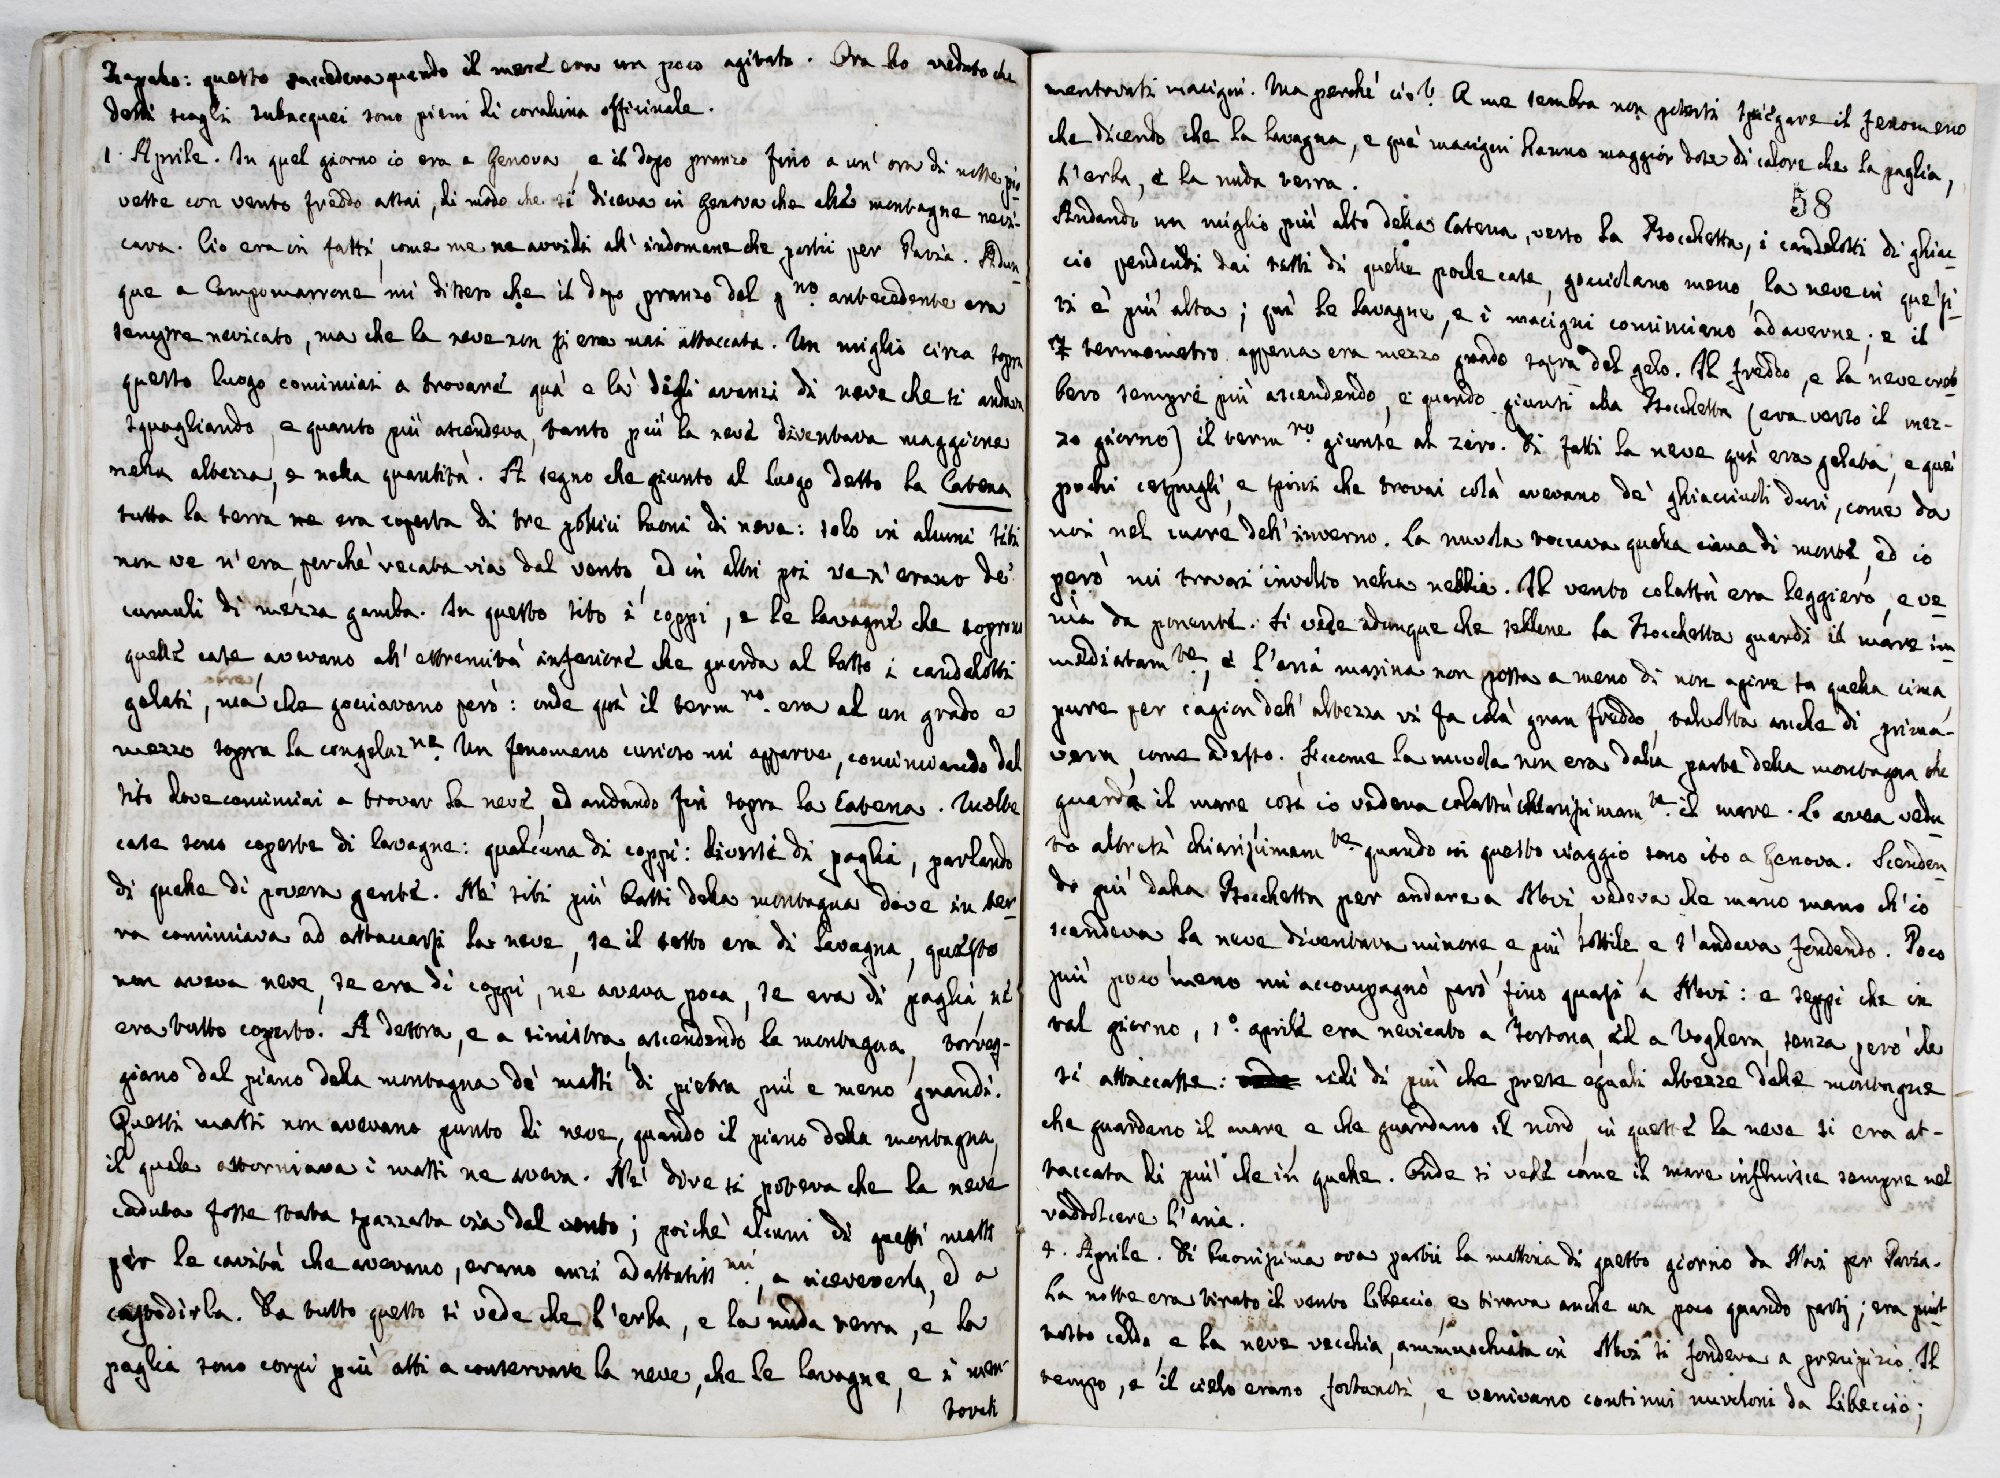 questo succedeva quando il mare era un poco agitato. Ora ho veduto che
detti scogli subacquei sono pieni di corallina officinale.
1. Aprile. In quel giorno io era a Genova, e il dopo pranzo fino a un' ora di notte pio-
vette con vento freddo assai, di modo che si diceva in Genova che alle montagne nevi-
cava. Ciò era in fatti, come me ne avvidi all' indomane che partii per Pavia. Adun-
que a Campomarrone mi dissero che il dopo pranzo del g.no antecedente era
sempre nevicato, ma che la neve non si era mai attaccata. Un miglio circa sopra
questo luogo cominciai a trovare quà e là degli avanzi di neve che si andava
squagliando, e quanto più ascendeva, tanto più la neve diventava maggiore
nella altezza, e nella quantità. A segno che giunto al luogo detto la Catena
tutta la terra ne era coperta di tre pollici buoni di neve: solo in alcuni siti
non ve n'era, perchè recata via dal vento, ed in altri poi ve n'erano de'
cumuli di mezza gamba. In questo sito i coppi, e le lavagne che coprono
quelle case avevano all' estremità inferiore che guarda al basso i candelotti
gelati, ma che gocciavano però: onde quì il term.ro era al un grado e
mezzo sopra la congelaz.ne Un fenomeno curioso mi apparve, cominciando dal
sito dove cominciai a trovar la neve, ed andando fin sopra la Catena. Molte
case sono coperte di lavagne: qualcuna di coppi: diverse di paglia, parlando
di quelle di povera gente. Ne' siti più bassi della montagna dove in ter-
ra cominciava ad attaccarsi la neve, se il tetto era di lavagna, questo
non aveva neve, se era di coppi, ne aveva poca, se era di paglia, ne
era tutto coperto. A destra, e a sinistra, ascendendo la montagna, sorveg-
giano dal piano della montagna de' massi di pietra più e meno grandi.
Questi massi non avevano punto di neve, quando il piano della montagna,
il quale attorniava i massi ne aveva. Nè dire si poteva che la neve
caduta fosse stata spazzata via dal vento; poichè alcuni di questi massi
per le cavità che avevano, erano anzi adattatiss.mi a riceverla, ed a
custodirla. Da tutto questo si vede che l'erba, e la nuda terra, e la
paglia sono corpi più atti a conservare la neve, che le lavagne, e i men-
tovati
mentovati macigni. Ma perchè ciò? A me sembra non potersi spiegare il fenomeno
che dicendo che la lavagna, e que' macigni hanno maggior dose di calore che la paglia,
l'erba, e la nuda terra.
58
Andando un miglio più alto della Catena, verso la Bocchetta, i candelotti di ghiac-
cio pendenti dai tetti di quelle poche case, gocciolano meno, la neve in que' si-
ti è più alta; quì le lavagne, e i macigni cominciano ad averne; e il
termometro appena era mezzo grado sopra del gelo. Il freddo, e la neve creb-
bero sempre più ascendendo, e quando giunsi alla Bocchetta (era verso il mez-
zo giorno) il term.ro giunse al zero. Di fatti la neve quì era gelata, e quei
pochi cespugli, e spini che trovai colà avevano de' ghiacciuoli duri, come da
noi nel cuore dell' inverno. La nuvola toccava quella cima di monte, ed io
però mi trovai involto nella nebbia. Il vento colassù era leggiero, e ve-
nia da ponente. Si vede adunque che sebbene la Bocchetta guardi il mare im-
mediatam.te, e l'aria marina non possa a meno di non agire su quella cima,
pure per cagion dell' altezza vi fa colà gran freddo, talvolta anche di prima-
vera, come adesso. Siccome la nuvola non era dalla parte della montagna che
guarda il mare così io vedeva colassù chiarissimam.te il mare. Lo avea vedu-
to altresì chiarissimam.te quando in questo viaggio sono ito a Genova. Scenden-
do giù dalla Bocchetta per andare a Novi, vedeva che mano mano ch'io
scendeva la neve diventava minore, e più sottile, e s'andava fondendo. Poco
più poco meno mi accompagnò però fino quasi a Novi: e seppi che in
tal giorno, 1.o aprile era nevicato a Tortona, ed a Voghera, senza però che
si attaccasse: vidi di più che prese eguali altezze delle montagne
che guardano il mare, e che guardano il nord, in queste la neve si era at-
taccata di più che in quelle. Onde si vede come il mare influisce sempre nel
raddolcere l'aria.
4. Aprile. Di buonissima ora partii la mattina di questo giorno da Novi per Pavia.
La notte era tirato il vento libeccio, e tirava anche un poco quando partj; era piut-
tosto caldo e la neve vecchia, ammucchiata in Novi si fondeva a precipizio. Il
tempo, e il cielo erano fortunosi, e venivano continui nuvoloni da libeccio;